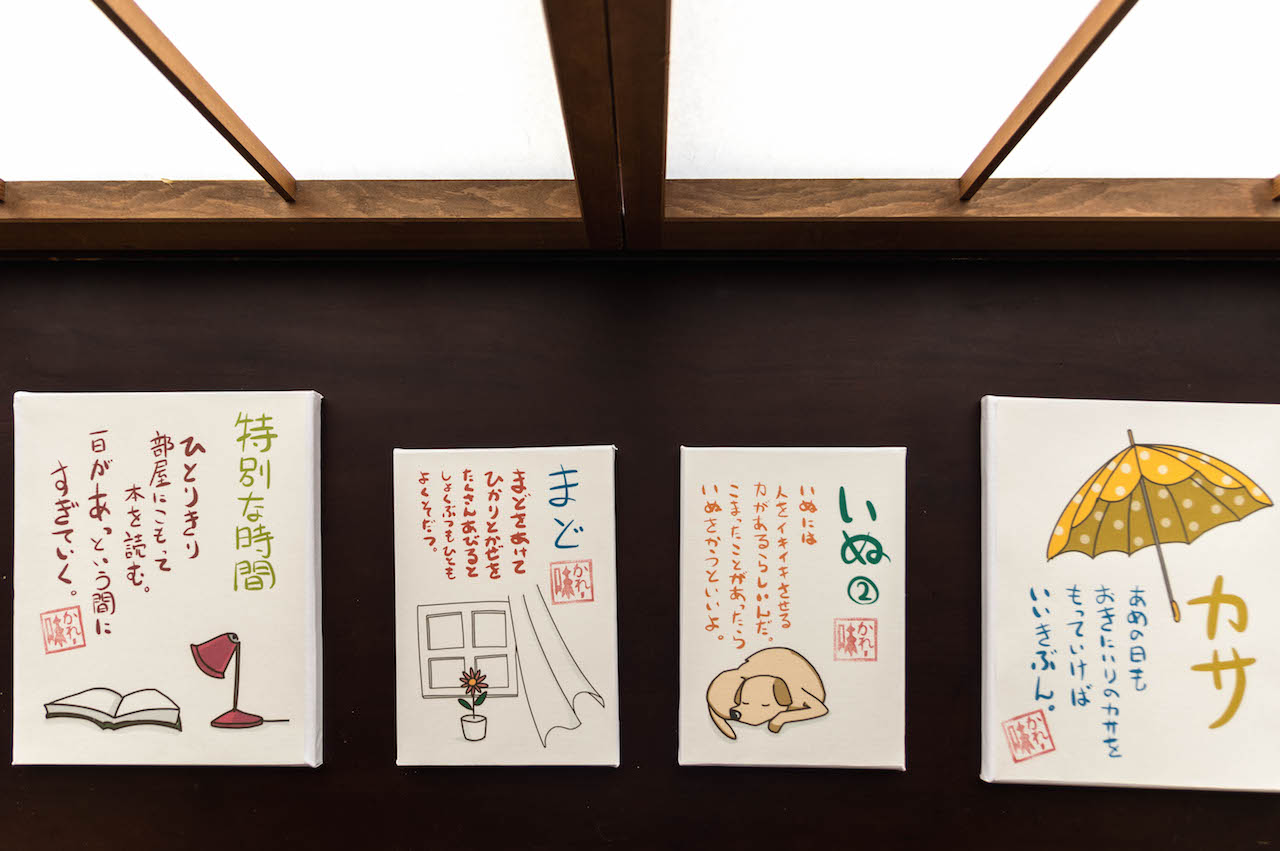 特別な時間
ひとりきり
部屋にこもって
本を読む。
一日があっという間に
すぎていく。
かれー
味
まど
まどをあけて
ひかりとかぜを
たくさんあびると
しょくぶつもひとも
よくそだつ。
かれー
味
いぬ②
いぬには
人をイキイキさせる
力があるらしいんだ。
こまったことがあったら
いぬをかうといいよ。
かれー
味
カサ
あめの日も
おきにいりのカサを
もっていけば
いいきぶん。
かれー
味